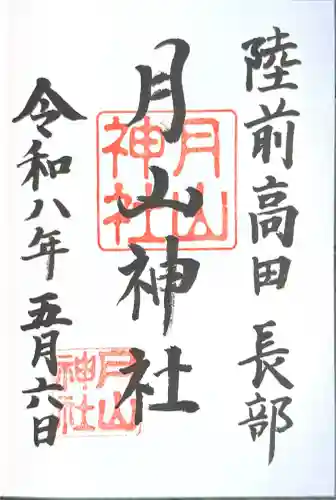 陸前高田 長部
月山神社
月山
神社
令和八年 五月六日
月山
神社